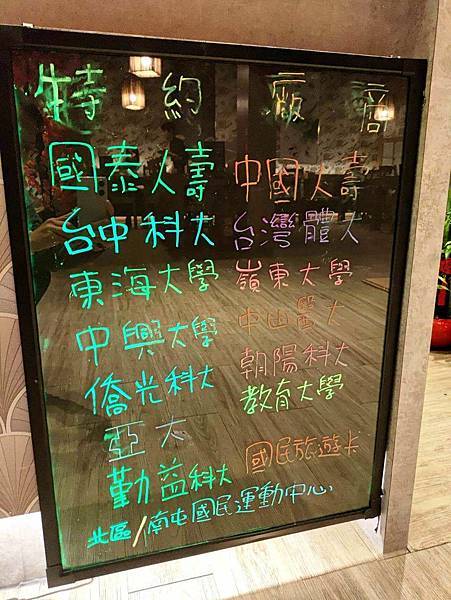 特約廠商
國泰人壽 中國人壽
台中科大 台灣體大
東海大學 嶺東大學
中興大學 中山醫大
僑光科大 朝陽科大
教育大學
亞大
勤益科大 國民旅遊卡
北區/南屯國民運動中心